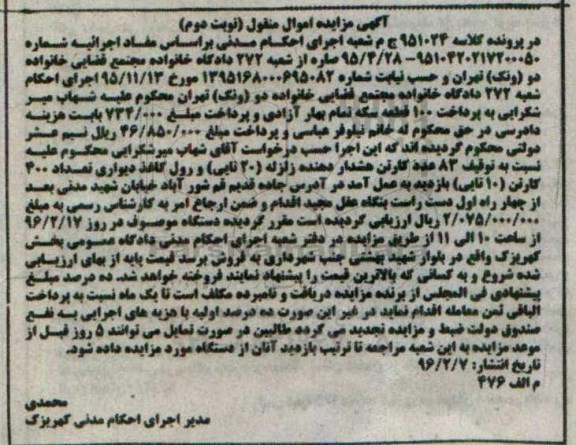 آگهی مزایده اموال منقول (نوبت دوم)
در پرونده کلاسه ۹۵۱۰۲۴ ج م شعبه اجرای احکام مدنی براساس مفاد اجرائیه شماره
۹۵۱۰۴۲۰۲۱۷۲۰۰۰۵۰ – ۹۵/۳/۲۸ صاره از شعبه ۲۷۲ دادگاه خانواده مجتمع قضایی خانواده
دو (ونک) تهران و حسب نیابت شماره ۱۳۹۵۱۶۸۰۰۰۶۹۵۰۸۲ مورخ ۹۵/۱۱/۱۳ اجرای احکام
شعبه ۲۷۲ دادگاه خانواده مجتمع قضایی خانواده دو (ونک) تهران محکوم علیه شهاب میر
شکرایی به پرداخت ۱۰۰ قطعه سکه تمام بهار آزادی و پرداخت مبلغ ۷۳۲/۰۰۰ بابت هزینه
دادرسی در حق محکوم له خانم نیلوفر عباسی و پرداخت مبلغ ۴۶/۸۵۰/۰۰۰ ریال نیم عشر
دولتی محکوم گردیده اند که این اجرا حسب درخواست آقای شهاب میرشکرایی محکوم علیه
نسبت به توقیف ۸۳ عدد کارتن هشدار دهنده زلزله (۲۰ تایی) و رول کاغذ دیواری تعداد ۴۰۰
کارتن (۱۰ تایی) بازدید به عمل آمد در آدرس جاده قدیم قم شور آباد خیابان شهید مدنی بعد
از چهار راه اول دست راست بنگاه عقل مجید اقدام و ضمن ارجاع امر به کارشناس رسمی به مبلغ
۲/۰۷۵/۰۰۰/۰۰۰ ریال ارزیابی گردیده است مقرر گردیده دستگاه موصوف در روز ۹۶/۲/۱۷
از ساعت ۱۰ الی ۱۱ از طریق مزایده در دفتر شعبه اجرای احکام مدنی دادگاه عمومی بخش
کهریزک واقع در بلوار شهید بهشتی جنب شهرداری به فروش برسد قیمت پایه از بهای ارزیابی
شده شروع و به کسانی که بالاترین قیمت را پیشنهاد نمایند فروخته خواهد شد. ده درصد مبلغ
پیشنهادی فی المجلس از برنده مزایده دریافت و نامبرده مکلف است تا یک ماه نسبت به پرداخت
الباقی ثمن معامله اقدام نماید در غیر این صورت ده درصد اولیه با هزینه های اجرایی به نفع
صندوق دولت ضبط و مزایده تجدید می گردد طالبین در صورت تمایل می توانند ۵ روز قبل از
موعد مزایده به این شعبه مراجعه تا ترتیب بازدید آنان از دستگاه مورد مزایده داده شود.
تاریخ انتشار: ۹۶/۲/۷
م الف ۴۷۶
محمدی
مدیر اجرای احکام مدنی کهریزک